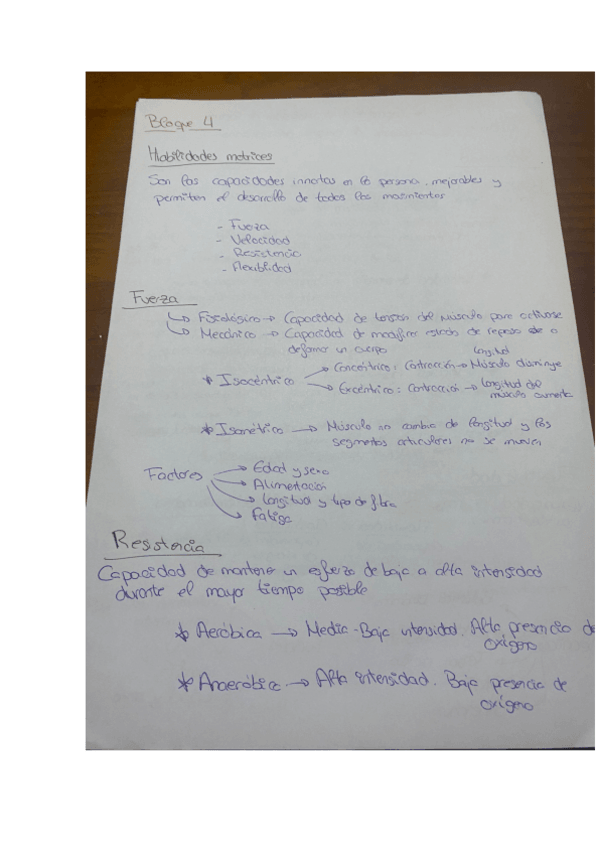 Bloque 4
Habilidades motrices
Son las capacidades innatas en la persona, mejorables y
permiten el desarrollo de todos los movimientos
- Fuerza
- Velocidad
- Resistencia
- flexiblidad
Fuerza
↳ Fisiológico → Capacidad de tensión del músculo para activarse
↳ Mecánico → Capacidad de modificar estado de reposo o
deformar un cuerpo
* Isocéntrico
→ Concéntrico: Contracción → longitud Músculo disminuye
→ Excéntrico: Contracción → Longitud del
músculo aumenta
* Isométrico → Músculo no cambia de longitud y los
segmentos articulares no se mueven
Factores → Edad y sexo
→ Alimentación
→ Longitud y tipo de fibra
→ Fatiga
Resistencia
Capacidad de mantener un esfuerzo de baja a alta intensidad
durante el mayor tiempo posible
* Aeróbica → Media-Baja intensidad. Alta presencia de
oxígeno
* Anaeróbica → Alta intensidad. Baja presencia de
oxígeno